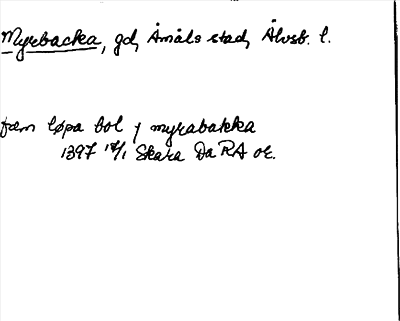 Myrbacka, gd, Åmåls stad, Älvsb. l.
fæm løpa bol j myrabakka
1397 17/1 Skara Da RA or.